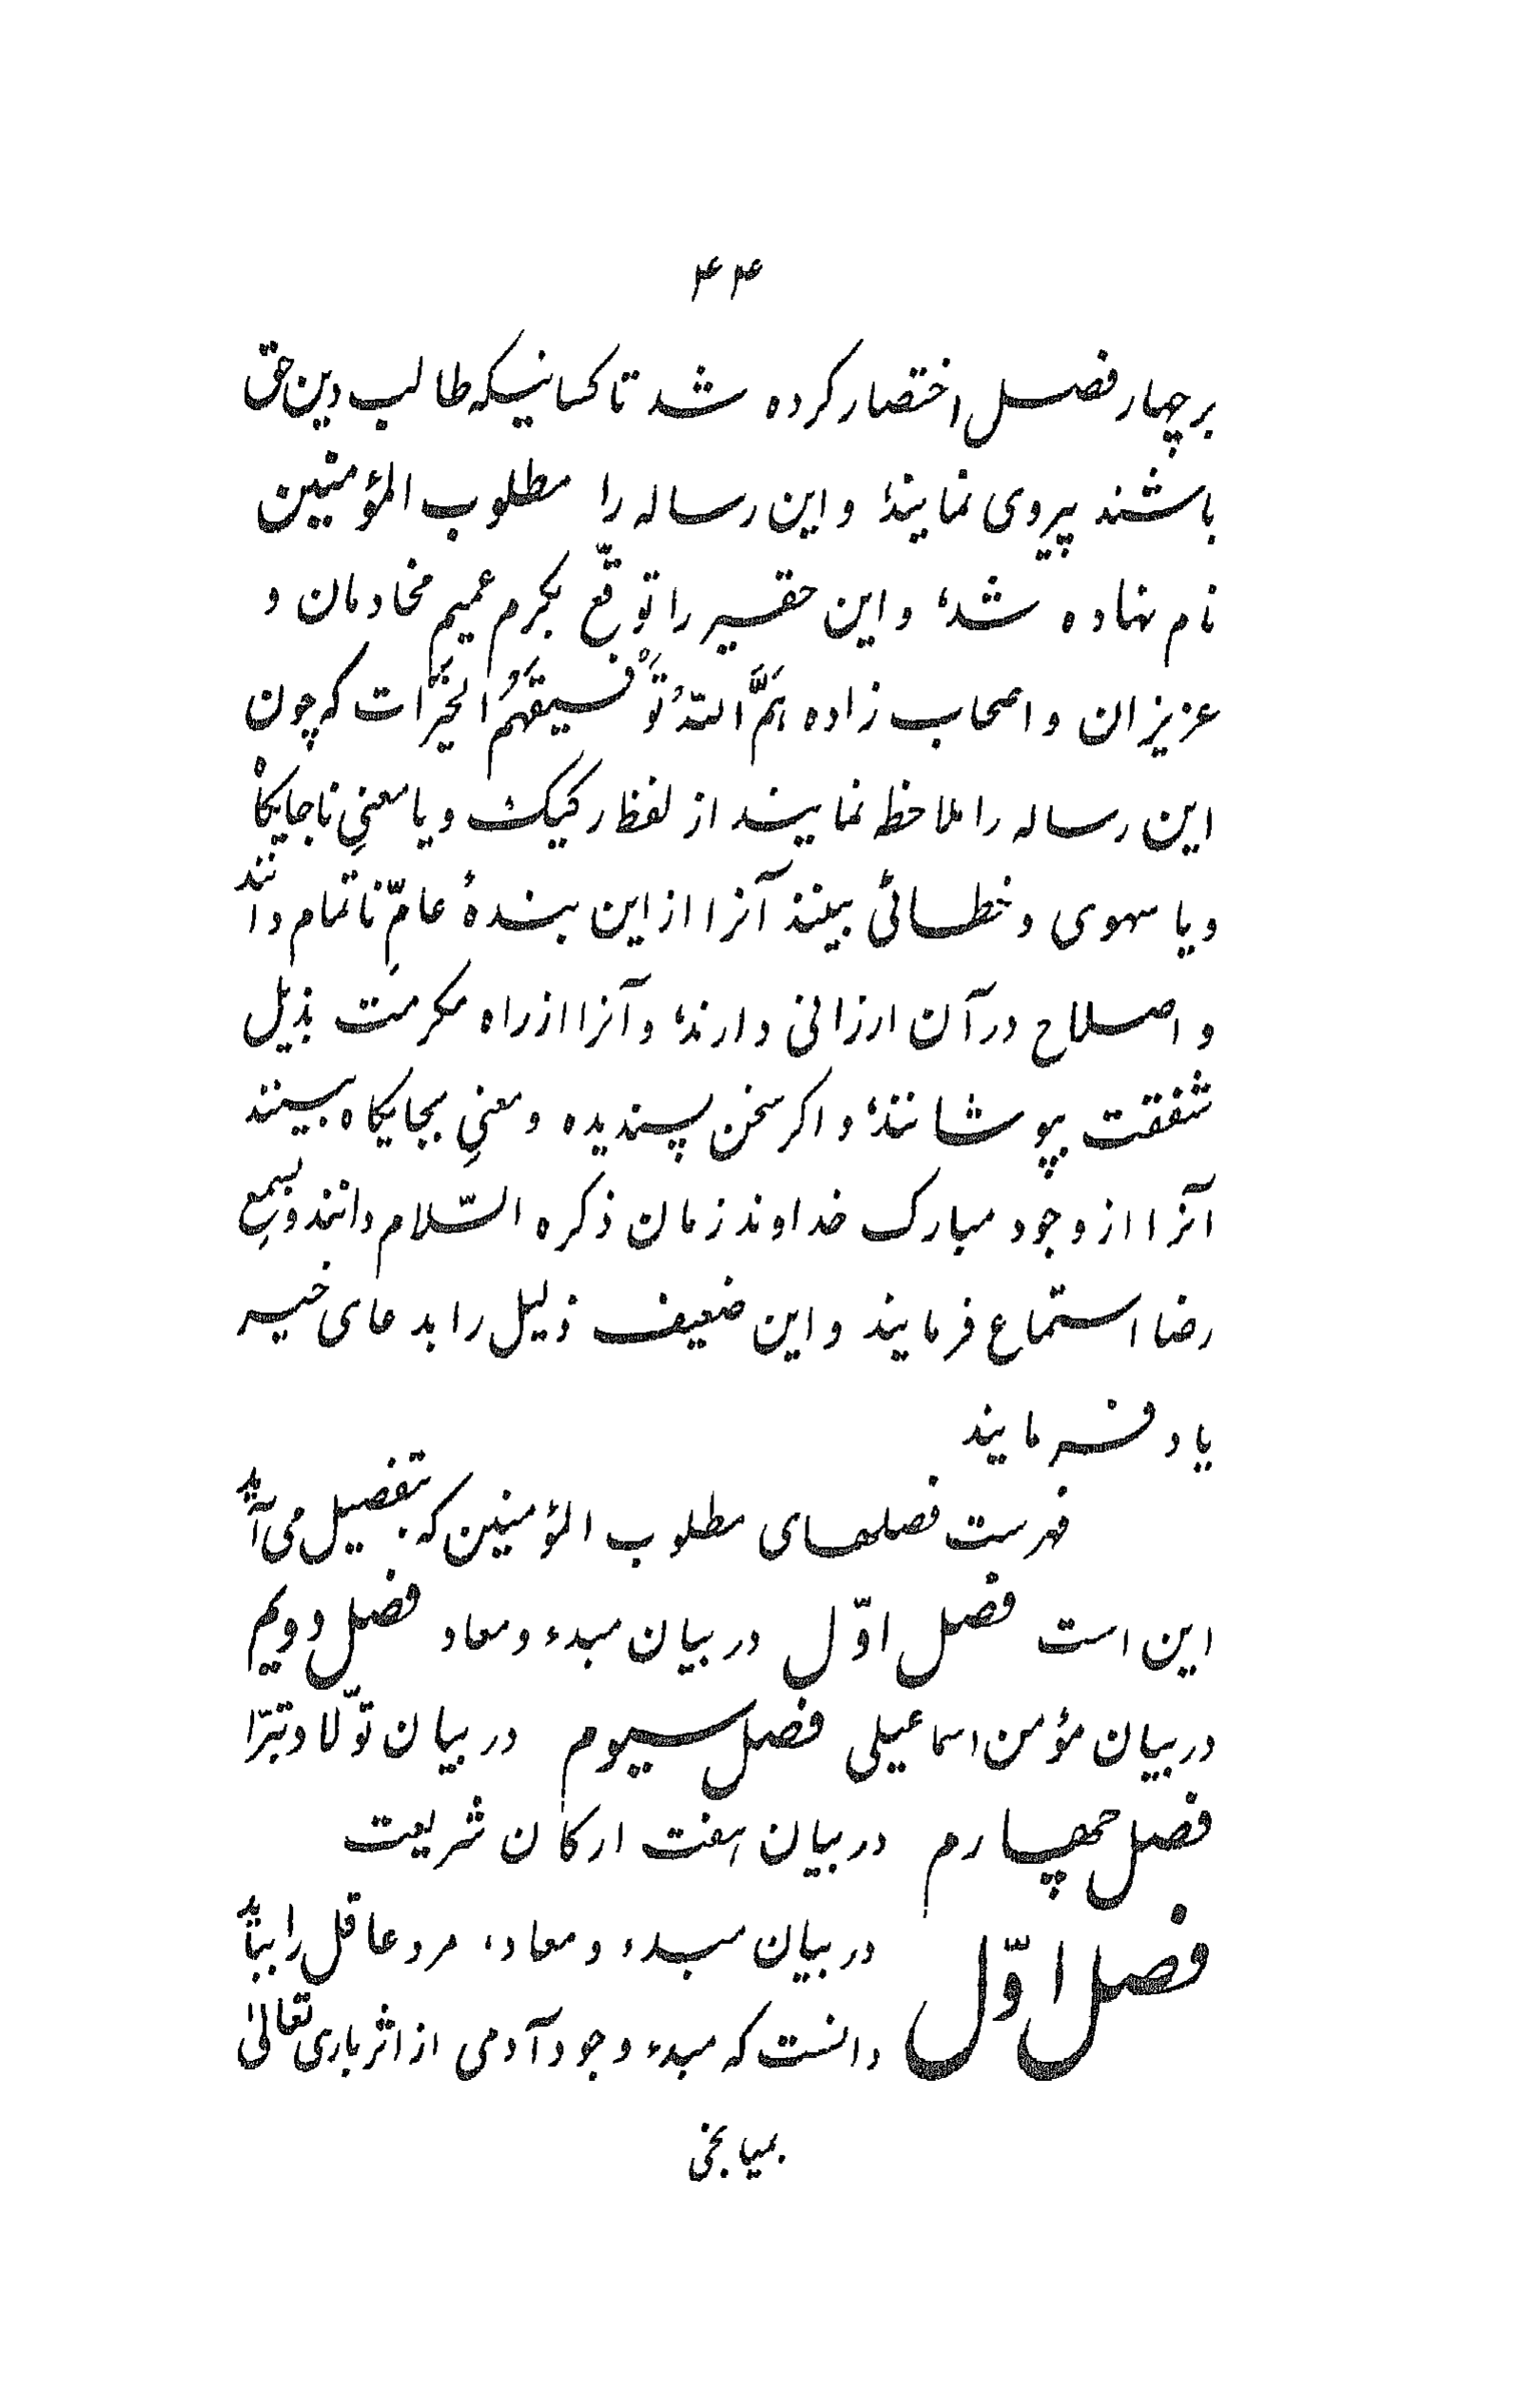 ۴۴
بر چهار فصل اختصار کرده شد تا کسانیکه طالب دین حق
باشند پیروی نمایند؛ و این رساله را مطلوب المؤمنین
نام نهاده شد؛ و این حقیر را توقّع بکرم عمیم مخادمان و
عزیزان و اصحاب زاده هَمَّ اللّهُ تَوْفیقَهُم الخَیْرات که چون
این رساله را ملاحظه نمایند از لفظ رکیک و یا معنیِ ناجایگاهْ
و یا سهوی و خطائی بینند آنرا از این بندهٔ عامِّ ناتمام دانند
و اصلاح در آن ارزانی دارند؛ و آنرا از راه مکرمَت بذیل
شفقت بپوشانند؛ و اگر سخن پسندیده و معنیِ بجایگاه بینند
آنرا از وجود مبارک خداوند زمان ذکره السّلام دانند و بسمعِ
رضا استماع فرمایند و این ضعیف ذلیل را بدعای خیر
یاد فرمایند
فهرست فصلهای مطلوب المؤمنین که بتفصیل می‌آید
این است فصل اوّل در بیان مبدء و معاد فصل دویم
در بیان مؤمن اسماعیلی فصل سیوم در بیان تولّا و تبرّا
فصل چهارم در بیان هفت ارکان شریعت
فصل اوّل در بیان مبدء و معاد، مرد عاقل را بباید
دانست که مبدء وجود آدمی از اثر باری تعالیٰ
بمیانجی